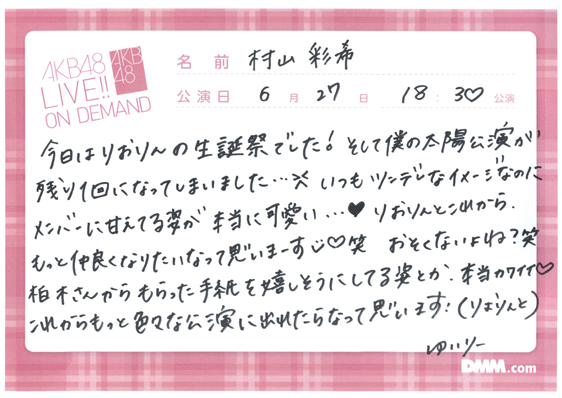 AKB48
LIVE!!
ON DEMAND
AKB
48
名前 村山 彩希
公演日 6月27日 18:30公演
今日はりおりんの生誕祭でした! そして僕の太陽公演が
残り1回になってしまいました…>< いつもツンデレなイメージなのに
メンバーに甘えてる姿が本当に可愛い…♥ りおりんとこれから、
もっと仲良くなりたいなって思いまーす♡笑 おそくないよね?笑
柏木さんからもらった手紙を嬉しそうにしてる姿とか、本当カワイイ♡
これからもっと色々な公演に出れたらなって思います!(りおりんと)
ゆいりー
DMM.com